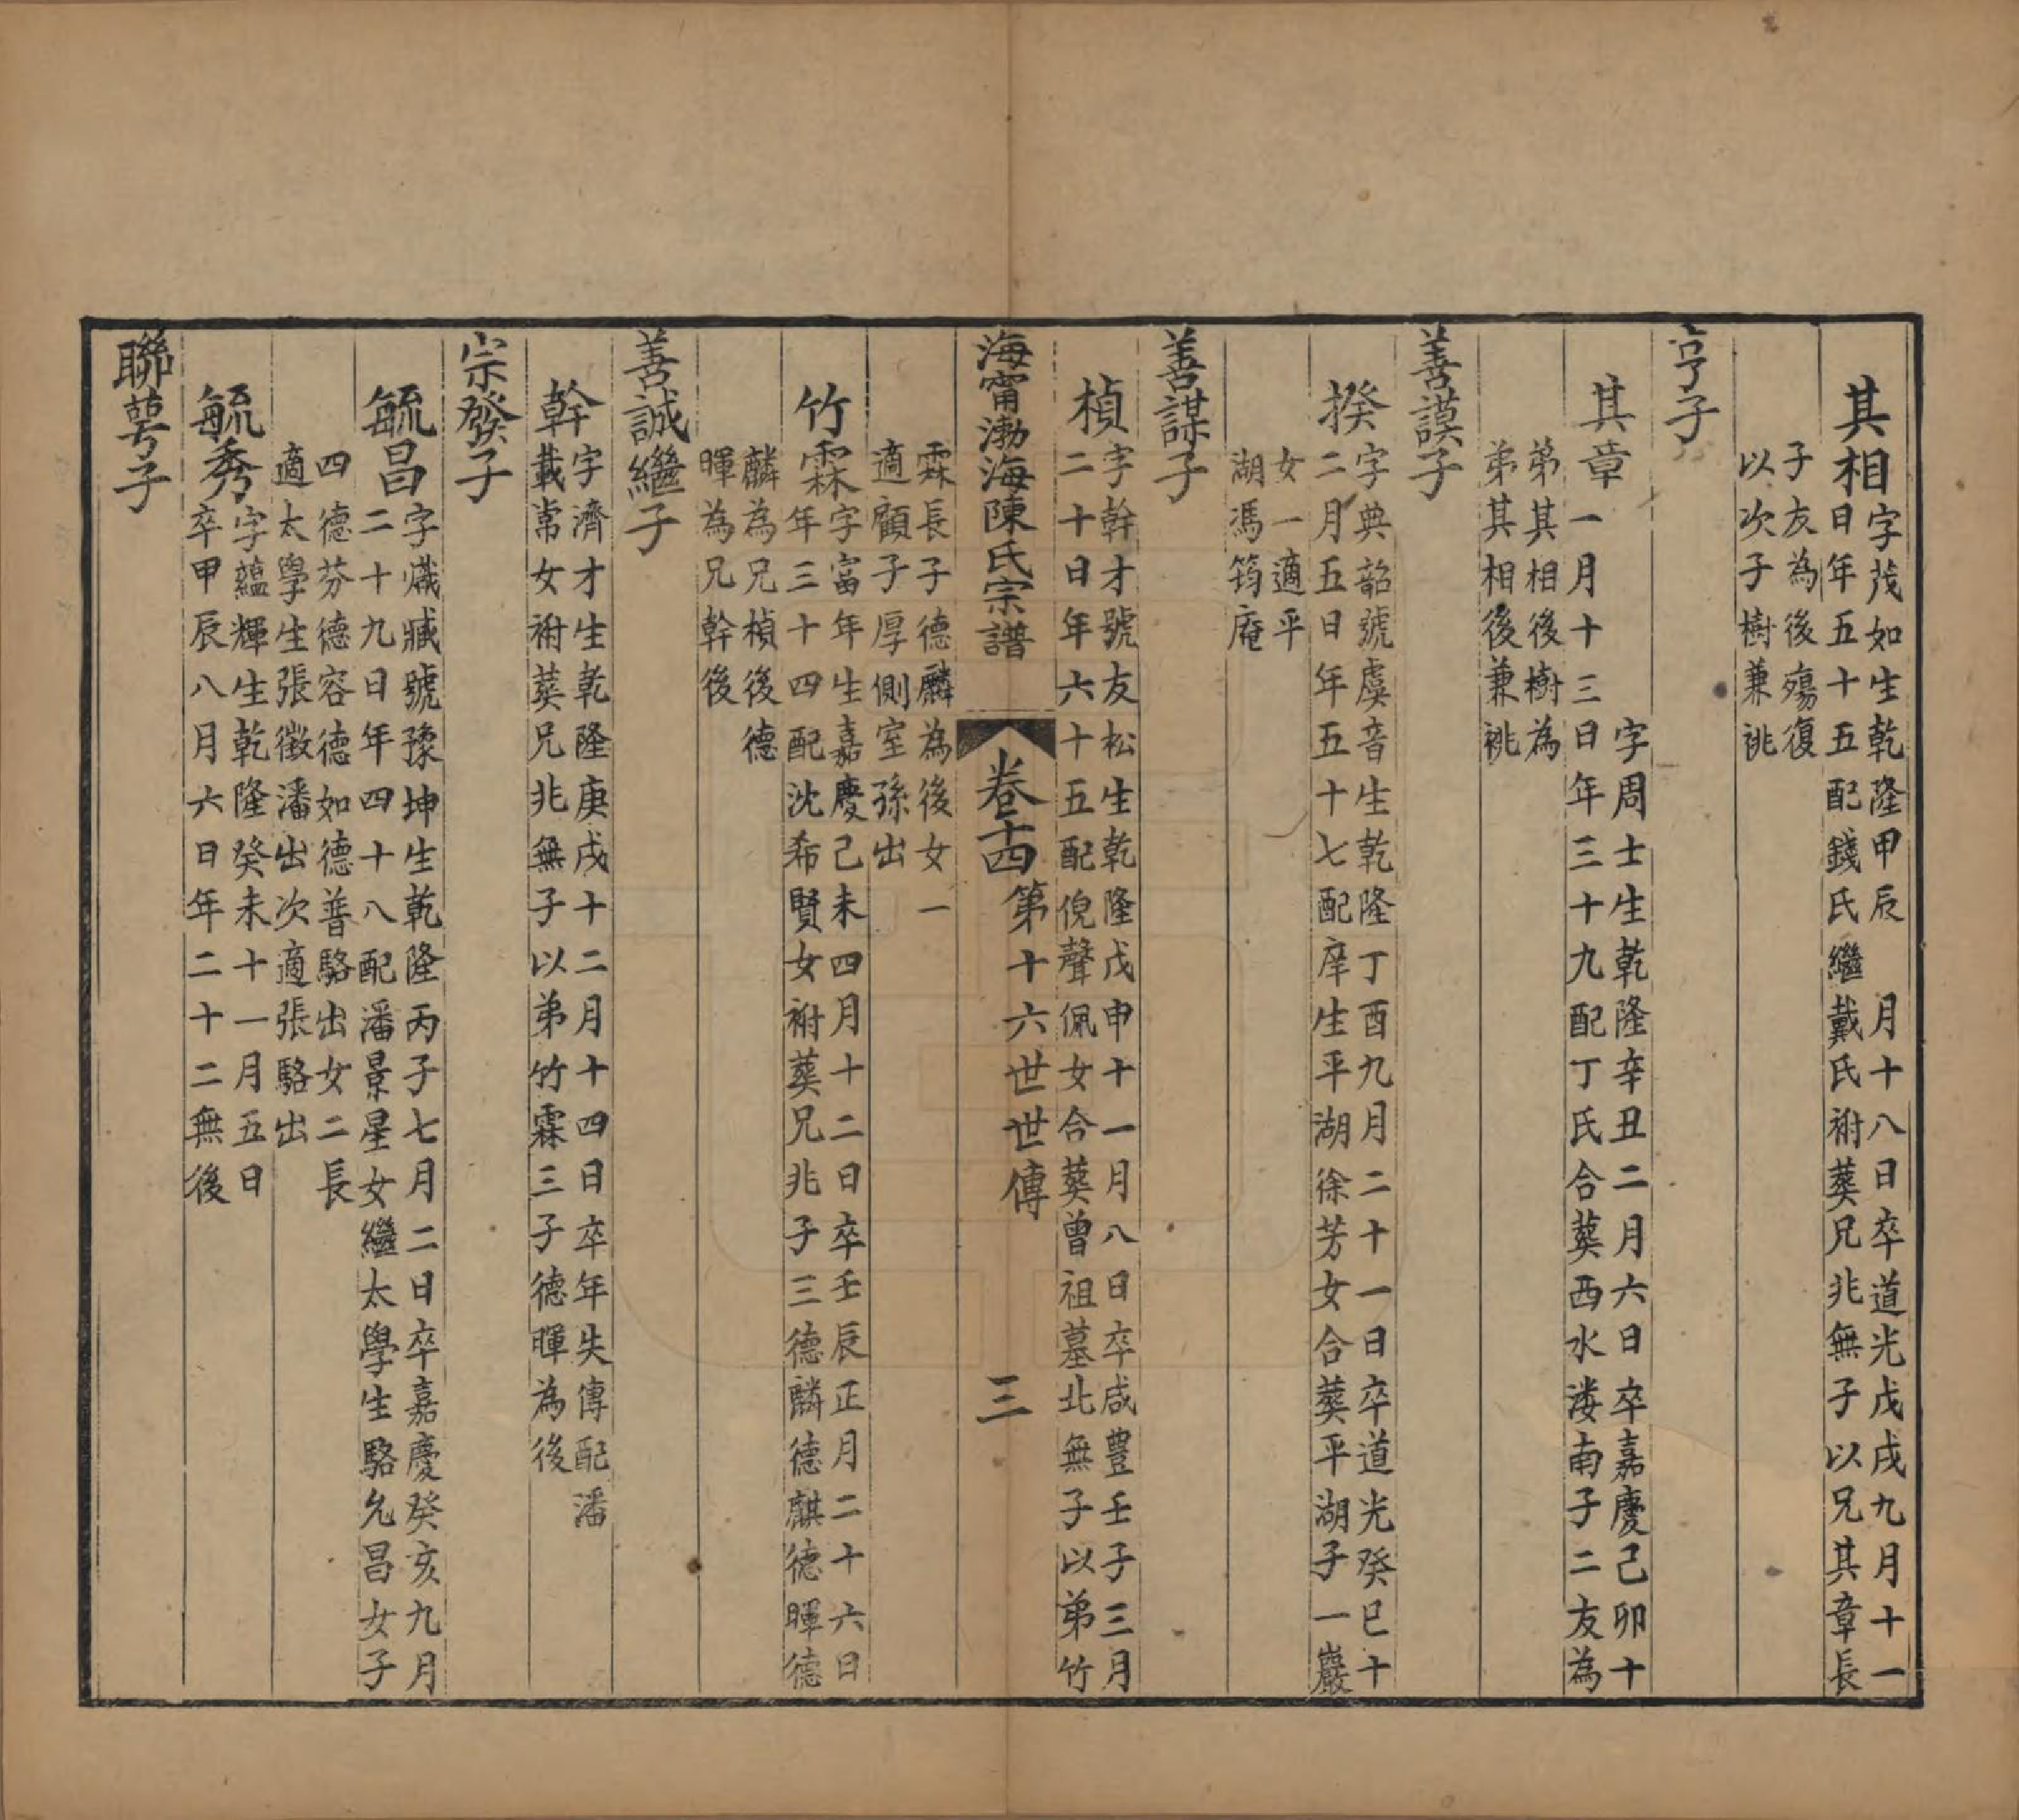 其相
字茂如生乾隆甲辰　月十八日卒道光戊戌九月十一
日年五十五配錢氏繼戴氏祔葬兄兆無子以兄其章長
子友為後殤復
以次子樹兼祧
亨子
其章
字周士生乾隆辛丑二月六日卒嘉慶己卯十
一月十三日年三十九配丁氏合葬西水漊南子二友為
弟其相後樹為
弟其相後兼祧
善謨子
揆
字典韶號虞音生乾隆丁酉九月二十一日卒道光癸巳十
二月五日年五十七配庠生平湖徐芳女合葬平湖子一巖
女一適平
湖馮筠庵
善謀子
楨
字幹才號友松生乾隆戊申十一月八日卒咸豐壬子三月
二十日年六十五配倪聲佩女合葬曾祖墓北無子以弟竹
海甯渤海陳氏宗譜
卷十四
第十六世世傳
三
霖長子德麟為後女一
適顧子厚側室孫出
竹霖
字富年生嘉慶己未四月十二日卒壬辰正月二十六日
年三十四配沈希賢女祔葬兄兆子三德麟德麒德暉德
麟為兄楨後德
暉為兄幹後
善誠繼子
幹
字濟才生乾隆庚戌十二月十四日卒年失傳配潘
載常女祔葬兄兆無子以弟竹霖三子德暉為後
宗發子
毓昌
字熾臧號豫坤生乾隆丙子七月二日卒嘉慶癸亥九月
二十九日年四十八配潘景星女繼太學生駱允昌女子
四德芬德容德如德普駱出女二長
適太學生張徵潘出次適張駱出
毓秀
字蘊輝生乾隆癸未十一月五日
卒甲辰八月六日年二十二無後
聯萼子